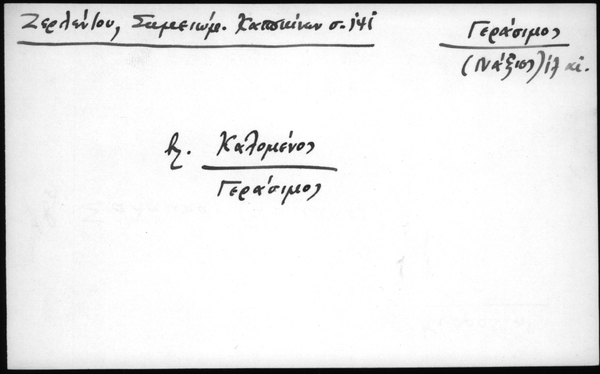 Ζερλέντου, Σημειώμ. Καπουκίνων σ. 141
Γεράσιμος
(Νάξιος)
βλ. Καλομένος
Γεράσιμος